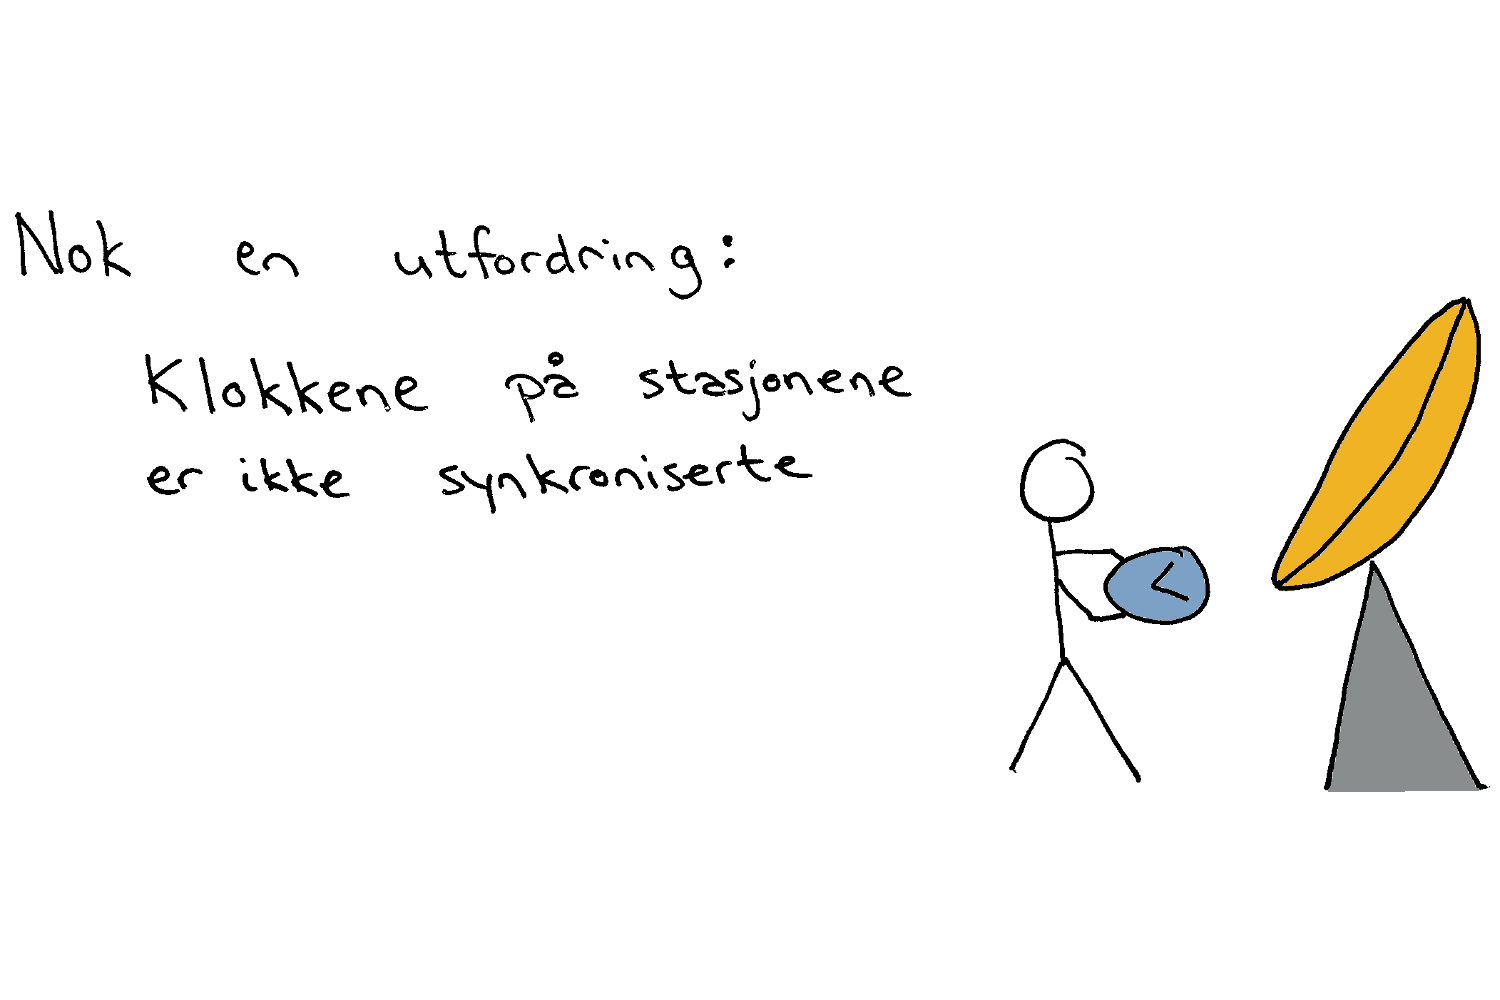 Nok en utfordring:
Klokkene på stasjonene
er ikke synkroniserte